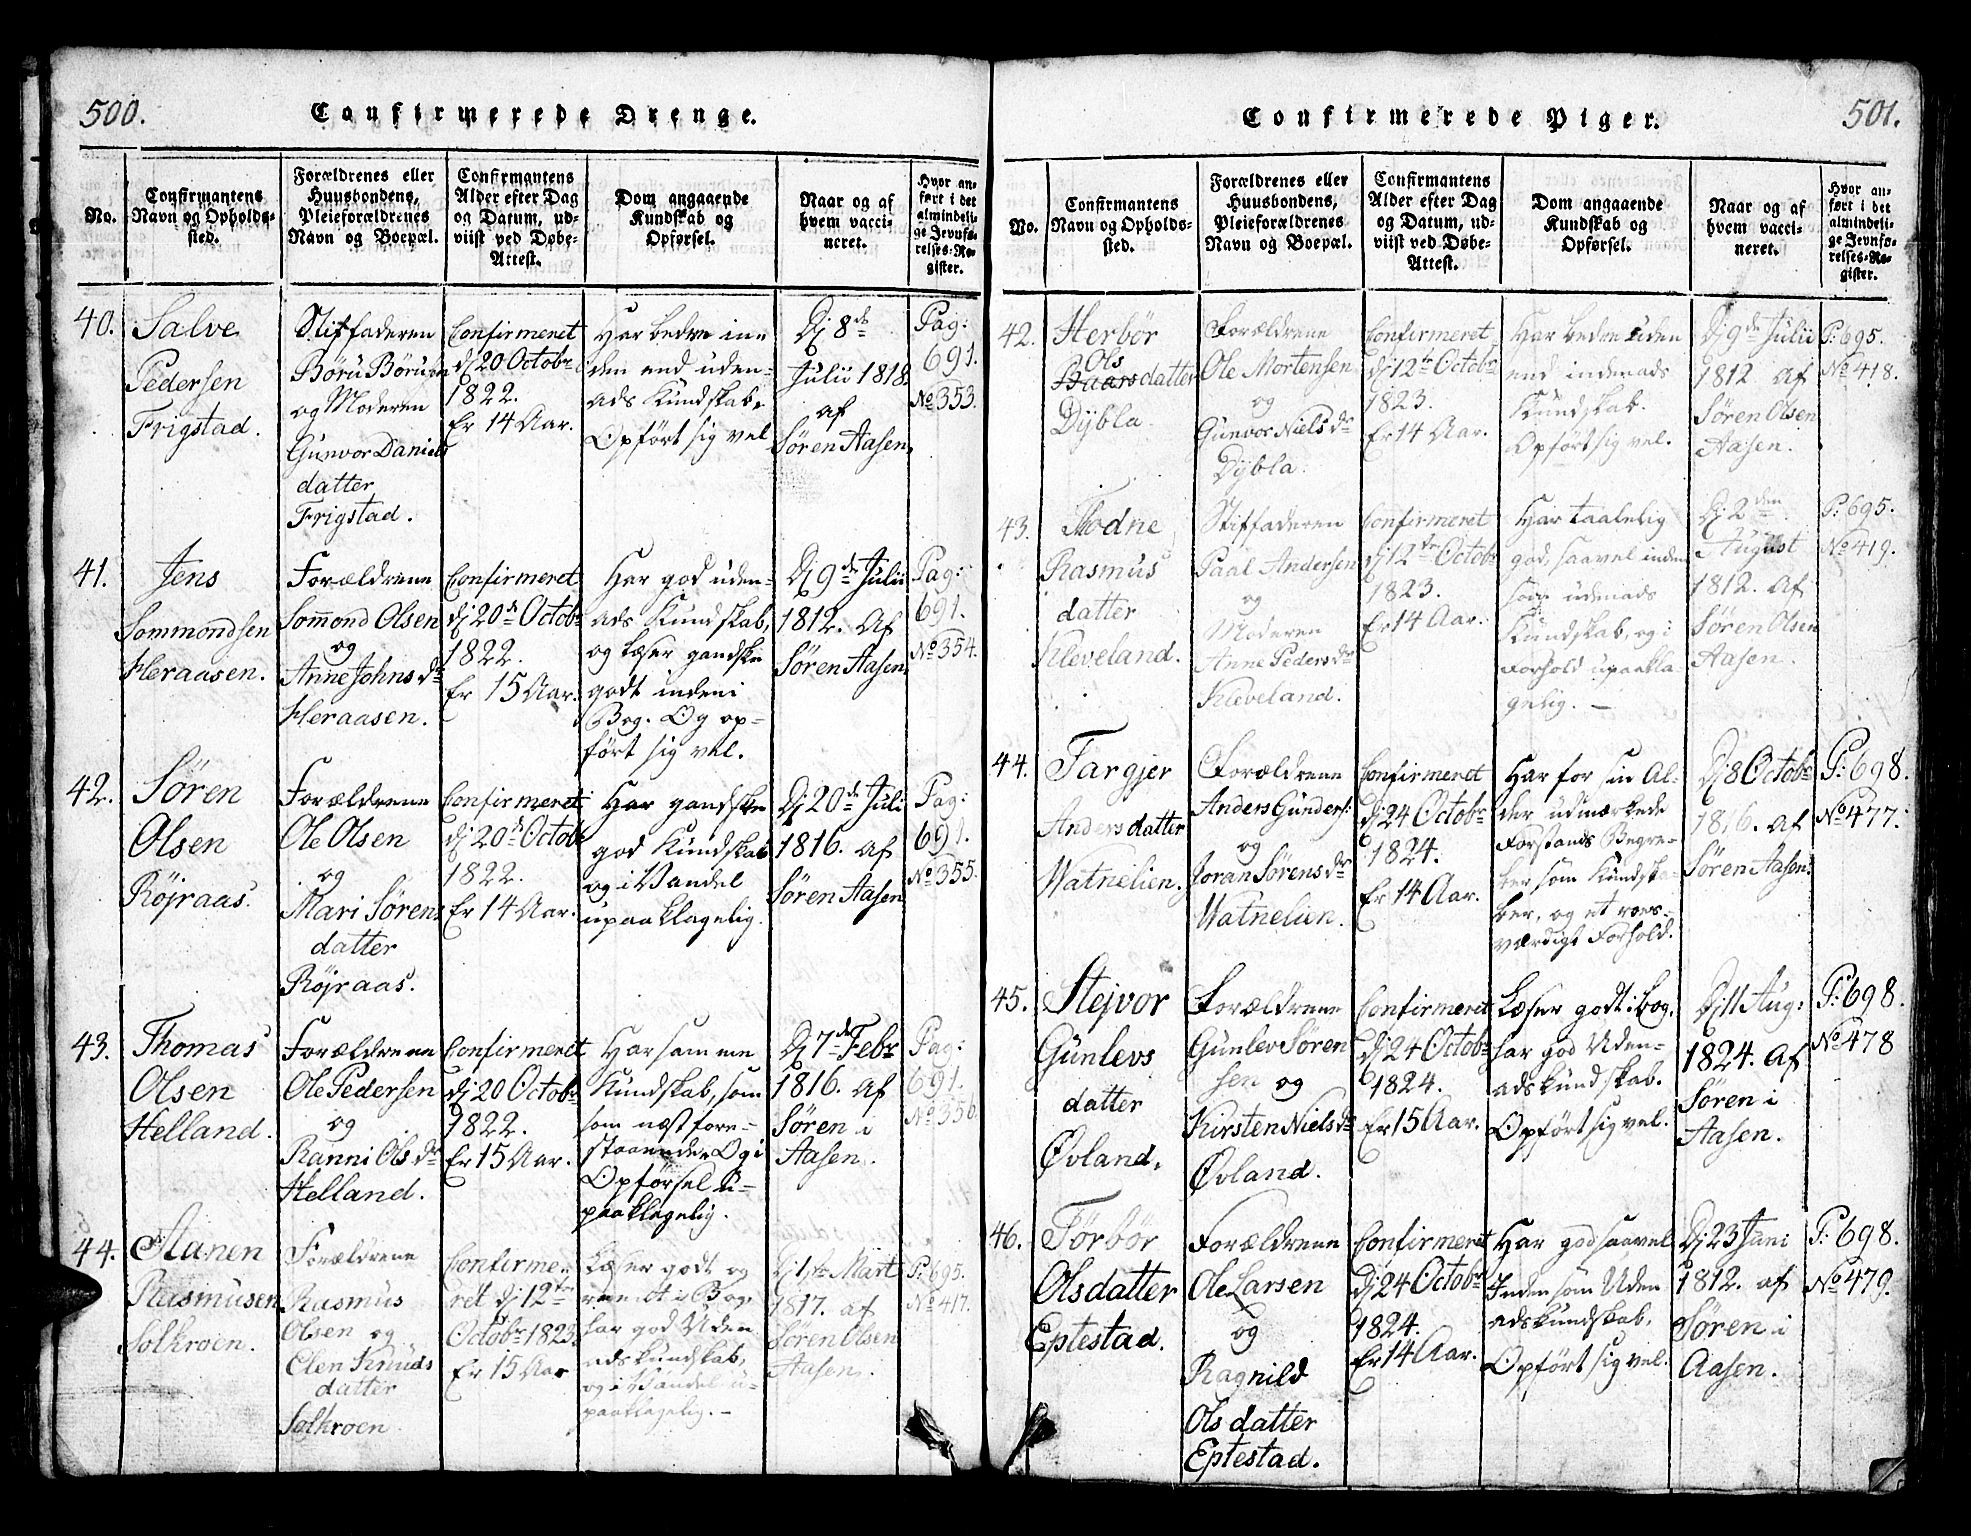 500.
Confirmerede Drenge.
No.
Confirmantens
Navn og Opholds-
sted.
Forældrenes eller
Huusbondens,
Pleieforældrenes
Navn og Boepæl.
Confirmantens
Alder efter Dag
og Datum, ud-
viist ved Døbe-
Attest.
Dom angaaende
Kundskab og
Opførsel.
Naar og af
hvem vacci-
neret.
Hvor an-
ført i det
almindeli-
ge Jevnfø-
relses-Re-
gister.
40.
Salve
Pedersen
Frigstad.
Stiffaderen
Børu Børuson
og Moderen
Gunvor Daniels
datter
Frigstad.
Confirmeret
dj 20 Octobr
1822.
Er 14 Aar.
Har bedre in-
den end uden-
ads Kundskab.
Opført sig vel
Dj 8de
Julii 1818.
af
Søren Aasen.
Pag:
691.
No 353.
41.
Jens
Sommondsen
Heraasen.
Forældrene
Somond Olsen
og
Anne Johns dr
Heraasen.
Confirmeret
dj 20de Octobr
1822.
Er 15 Aar.
Har god uden-
ads Kundskab,
og læser gandske
godt indeni
Bog. Og op-
ført sig vel.
Dj 9de Julii
1812. af
Søren Aasen.
Pag:
691.
No 354.
42.
Søren
Olsen
Röjraas.
Forældrene
Ole Olsen
og
Mari Sörens
datter
Röjraas.
Confirmeret
dj 20de Octobr
1822.
Er 14 Aar.
Har gandske
god Kundskab
og i Vandel
upaaklagelig.
Dj 20de Juli
1816. af
Søren Aasen
Pag:
691.
No 355.
43.
Thomas
Olsen
Helland.
Forældrene
Ole Pedersen
og
Ranni Ols dr
Helland.
Confirmeret
dj 20 Octobr
1822.
Er 15 Aar.
Har samme
Kundskab, som
som næst fore-
staaende. Og i
Opførsel u-
paaklagelig.
Dj 7de Febr
1816. af
Søren i
Aasen.
Pag:
691.
No 356
44.
Stanen
Rasmusen
Solkroen.
Forældrene
Rasmus
Olsen og
Elen Knuds
datter
Solkroen
Confirme-
ret dj 12te
Octobr 1823
Er 15 Aar
Læser godt og
reent i Bog,
har god Uden
adskundskab,
og i Vandel u-
paaklagelig.-
Dj 1ste Mart
1817. af
Søren Olsen
Aasen.
P: 695.
No 417.
501.
Confirmerede Piger.
No.
Confirmantens
Navn og Opholds-
sted.
Forældrenes eller
Huusbondens,
Pleieforældrenes
Navn og Boepæl.
Confirmantens
Alder efter Dag
og Datum, ud-
viist ved Døbe-
Attest.
Dom angaaende
Kundskab og
Opførsel.
Naar og af
hvem vacci-
neret.
Hvor an-
ført i det
almindeli-
ge Jevnfø-
relses-Re-
gister.
42.
Herbör
Ols
datter
Dÿbla.
Forældrene
Ole Mortensen
og
Gunvor Niels dr
Dÿbla.
Confirmeret
dj 12te Octobr
1823.
Er 14 Aar.
Har bedre uden
end indenads
Kundskab.
Opført sig vel.
Dj 9de Julii
1812 af
Søren Olsen
Aasen.
P: 695.
No 418.
43.
Todne
Rasmus
datter
Kleveland.
Stiffaderen
Paal Andersen
og
Moderen
Anne Peders dr
Kleveland.
Confirmeret
dj 12te Octobr
1823.
Er 14 Aar.
Har taalelig
god, saavel inden
som udenads
Kundskab, og i
Forhold upaakla
gelig. -
Dj 2den
August
1812. af
Søren Olsen
Aasen.
P: 695.
No 419.
44.
Targjer
Anders datter
Watnelien.
Forældrene
Anders Gunders:
og
Joran Sørens dr
Watnelien.
Confirmeret
dj 24 Octobr
1824.
Er 14 Aar.
Har for sin Al-
der udmærkede
Forstands Begre-
ber som Kundska-
ber, og et roes-
værdigt Forhold.
Dj 8 Octobr
1816. af
Søren Aasen.
P: 698.
No 477.
45.
Stejvor
Gunlevs
datter
Øvland.
Forældrene
Gunlev Sören
sen og
Kirsten Niels dr
Øvland.
Confirmeret
dj 24 Octobr
1824.
Er 15 Aar.
Læser godt i Bog,
har god Uden-
adskundskab.
Opført sig vel.
Dj 11 Aug:
1824. af
Søren i
Aasen.
P: 698.
No 478
46.
Törbör
Olsdatter
Eptestad.
Forældrene
Ole Larsen
og
Ragnild
Ols datter
Eptestad.
Confirmeret
dj 24 Octobr
1824.
Er 14 Aar.
Har god saavel
Inden som Uden
adskundskab.
Opført sig vel.
Dj 23 Juni
1812. af
Søren i
Aasen.
P: 698.
No 479.